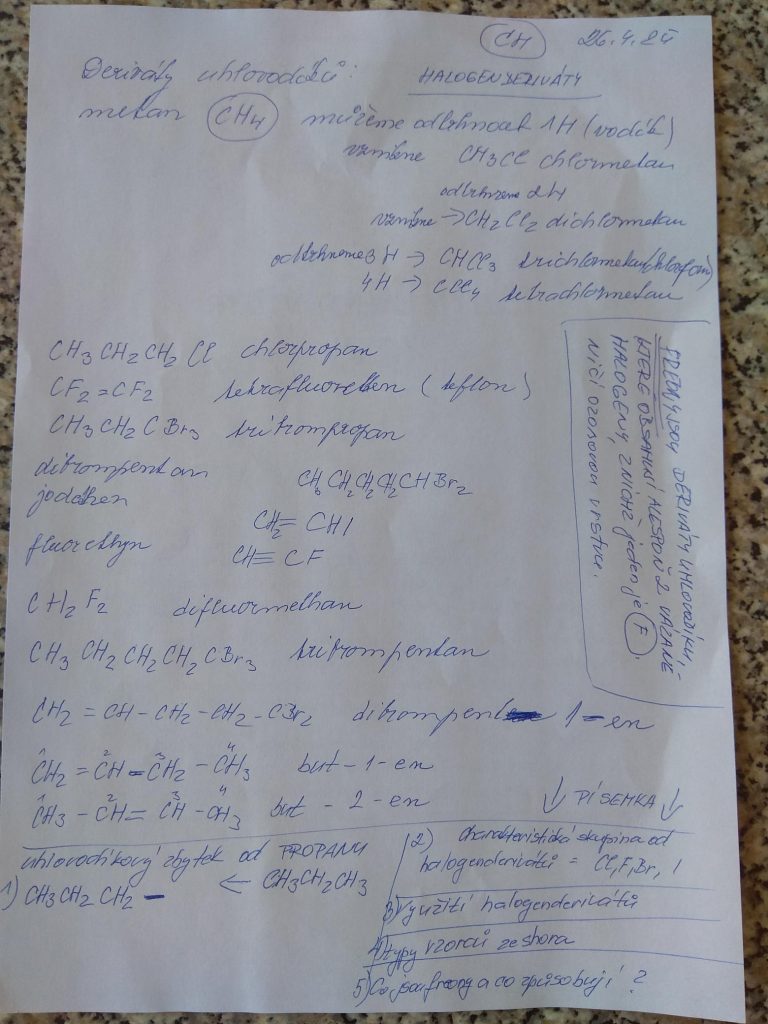 CH 26.4.24
Deriváty uhlovodíků: HALOGENDERIVÁTY
metan CH4 můžeme odtrhnout 1H (vodík)
vznikne CH3Cl chlormetan
odtrhneme 2H
vznikne → CH2Cl2 dichlormetan
odtrhneme 3H → CHCl3 trichlormetan (chloroform)
4H → CCl4 tetrachlormetan
CH3CH2CH2Cl chlorpropan
CF2=CF2 tetrafluorethen (teflon)
CH3CH2CBr3 tribrompropan
dibrompentan CH3CH2CH2CH2CHBr2
jodethen CH2=CHI
fluorethyn CH≡CF
CH2F2 difluormethan
CH3CH2CH2CH2CBr3 tribrompentan
CH2=CH-CH2-CH2-CBr2 dibrompent 1-en
1 2 3 4
CH2=CH-CH2-CH3 but-1-en
1 2 3 4
CH3-CH=CH-CH3 but-2-en
FREONY JSOU DERIVÁTY UHLOVODÍKU,
KTERÉ OBSAHUJÍ ALESPOŇ 2 VÁZANÉ
HALOGENY, Z NICHŽ jeden je F.
NIČÍ ozonovou vrstvu.
↓ PÍSEMKA ↓
uhlovodíkový zbytek od PROPANU
1) CH3CH2CH2- ← CH3CH2CH3
2) charakteristická skupina od
halogenderivátů = Cl, F, Br, I
3) Využití halogenderivátů
4) typy vzorců ze shora
5) Co jsou freony a co způsobují?